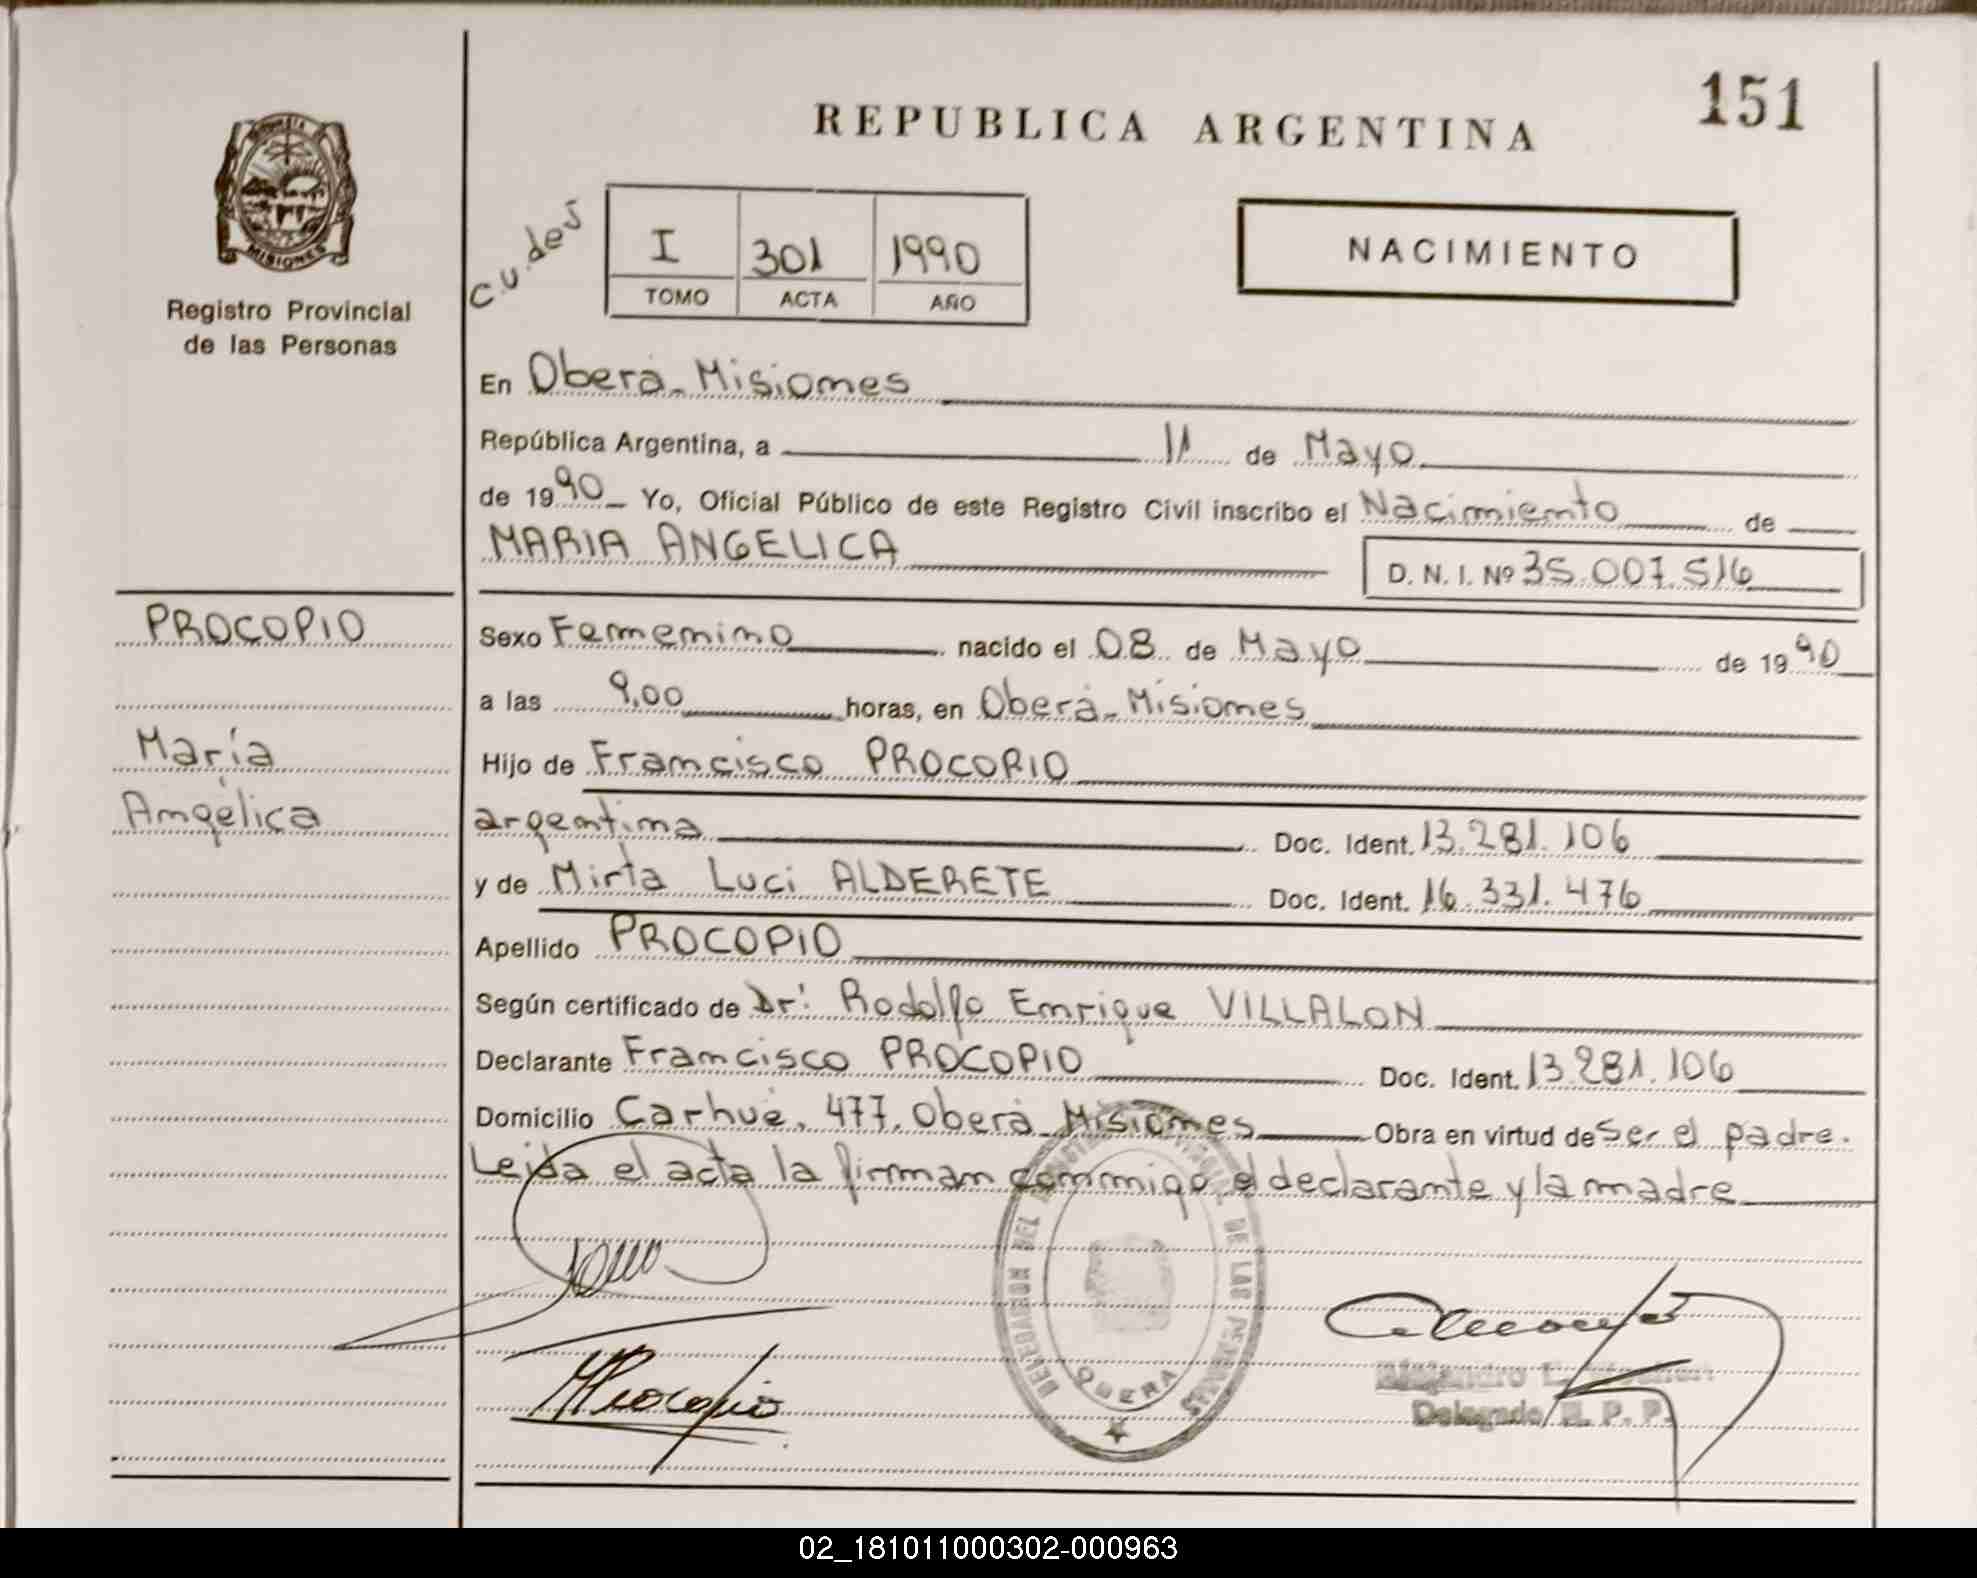 151
REPUBLICA ARGENTINA
MISIONES
Registro Provincial
de las Personas
I 301 1990
TOMO ACTA AÑO
NACIMIENTO
En Oberá-Misiones
República Argentina, a 11 de Mayo
de 1990 Yo, Oficial Público de este Registro Civil inscribo el Nacimiento de
MARIA ANGELICA D. N. I. Nº 35.007.516
PROCOPIO
María
Angélica
Sexo Femenino nacido el 08 de Mayo de 1990
a las 9,00 horas, en Oberá-Misiones
Hijo de Francisco PROCOPIO
argentina Doc. Ident. 13.281.106
y de Mirta Luci ALDERETE Doc. Ident. 16.331.476
Apellido PROCOPIO
Según certificado de Dr: Rodolfo Enrique VILLALON
Declarante Francisco PROCOPIO Doc. Ident. 13.281.106
Domicilio Carhué, 477, Oberá-Misiones Obra en virtud de Ser el padre.
Leída el acta la firman conmigo el declarante y la madre
DE LAS PERSONAS
OBERA
MProcopio
Alejandro
Delegado R. P. P.
02_181011000302-000963